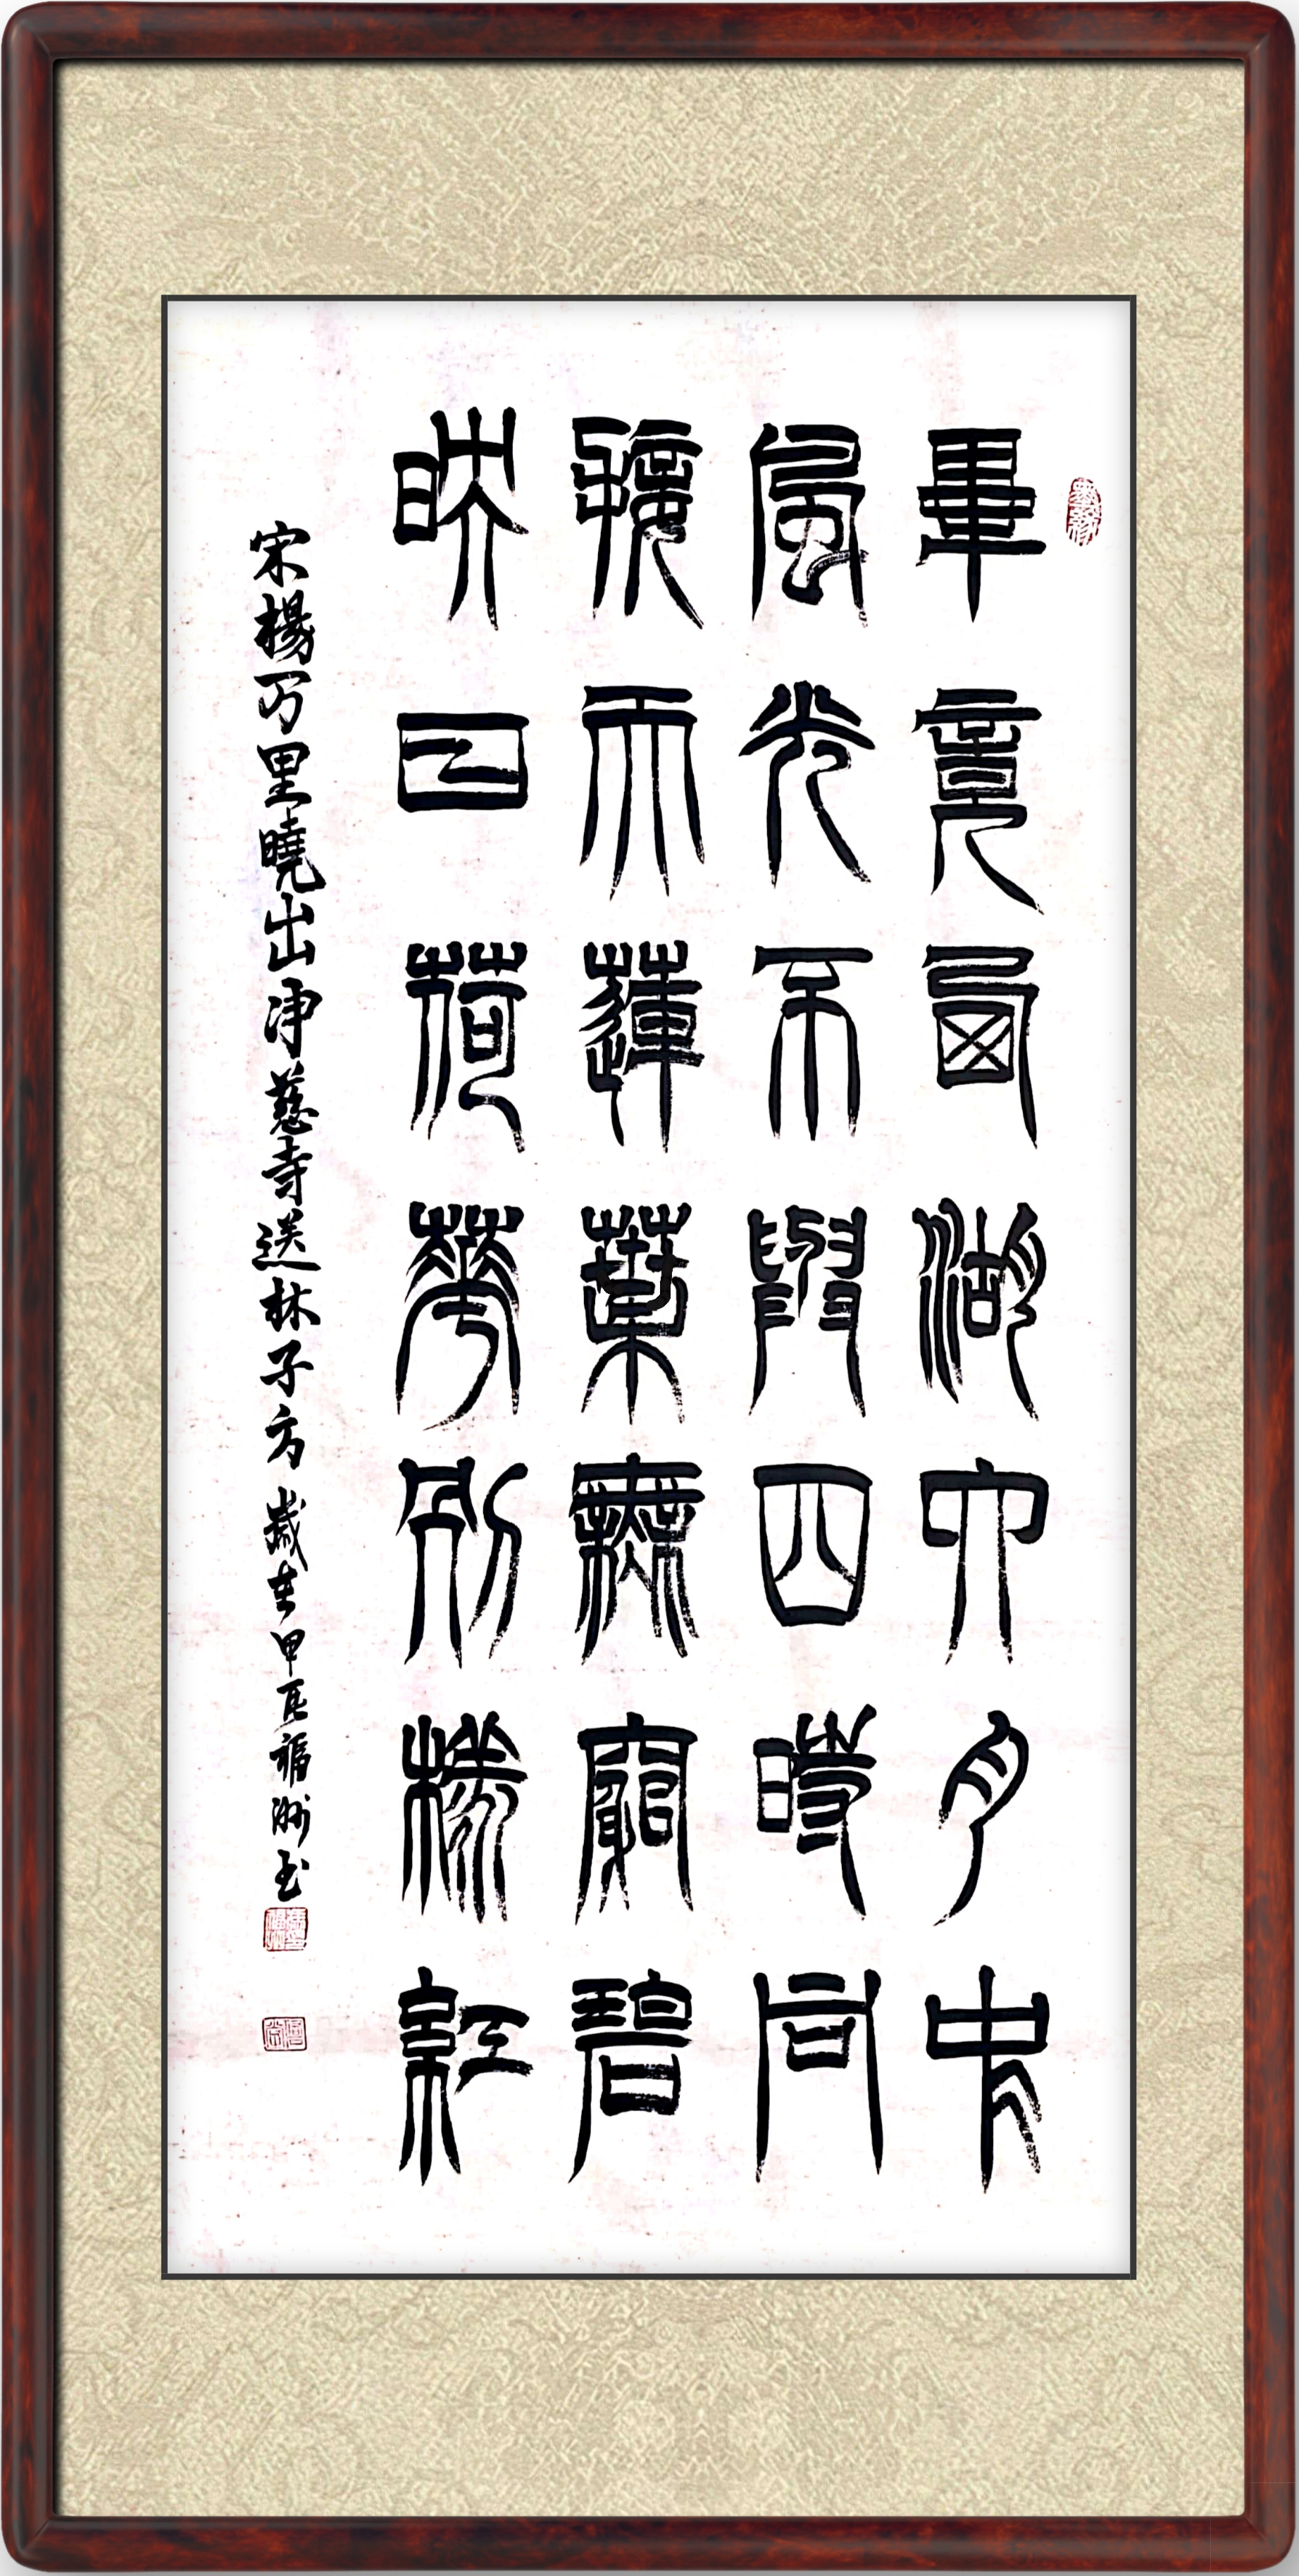 畢竟西湖六月中
風光不與四時同
接天蓮葉無窮碧
映日荷華別樣紅
宋楊万里曉出净慈寺送林子方 歲在甲辰福洲書